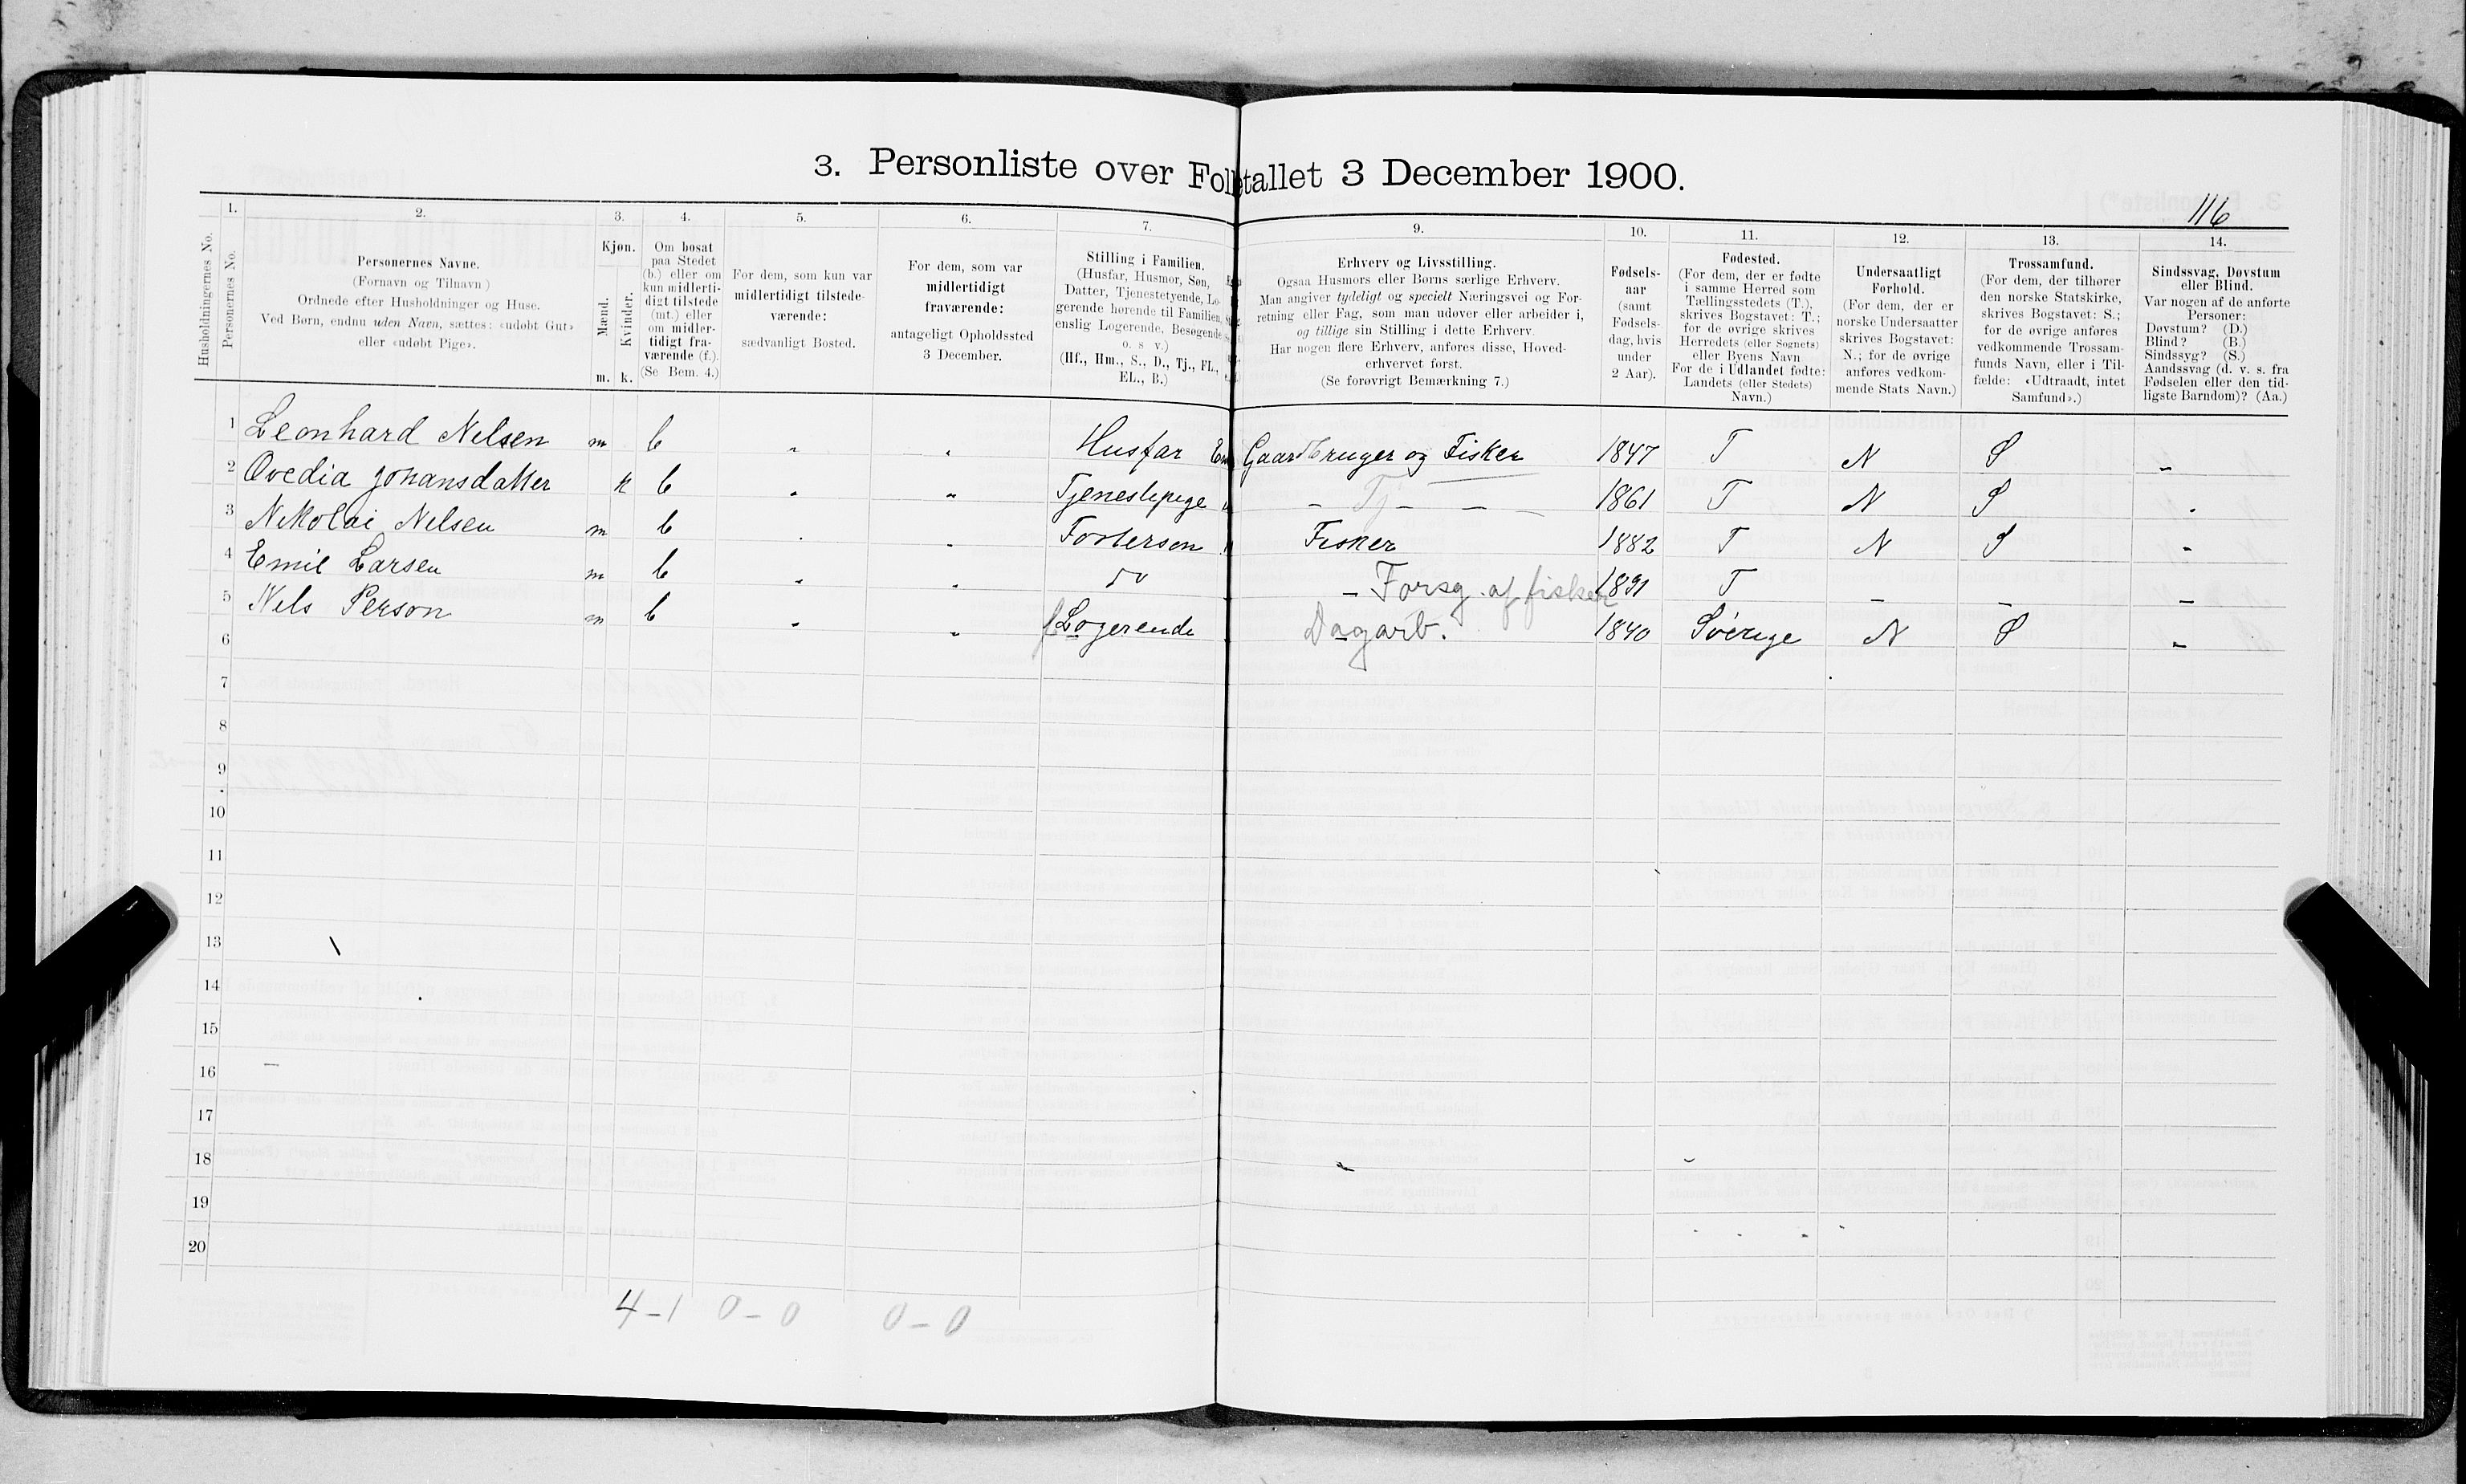 3. Personliste over Folketallet 3 December 1900.
116
1. 2. 3. 4. 5. 6. 7. 9. 10. 11. 12. 13. 14.
Husholdningernes No.
Personernes No.
Personernes Navne.
(Fornavn og Tilnavn)
Ordnede efter Husholdninger og Huse.
Ved Børn, endnu uden Navn, sættes: «udøbt Gut»
eller «udøbt Pige».
Kjøn.
Mænd.
Kvinder.
m. k.
Om bosat
paa Stedet
(b.) eller om
kun midlerti-
digt tilstede
(mt.) eller
om midler-
tidigt fra-
værende (f.).
(Se Bem. 4.)
For dem, som kun var
midlertidigt tilstede-
værende:
sædvanligt Bosted.
For dem, som var
midlertidigt
fraværende:
antageligt Opholdssted
3 December.
Stilling i Familien.
(Husfar, Husmor, Søn,
Datter, Tjenestetyende, Lo-
gerende hørende til Familien,
enslig Logerende, Besøgende
o. s v.)
(Hf., Hm., S., D., Tj., FL.,
EL., B.)
Erhverv og Livsstilling.
Ogsaa Husmors eller Børns særlige Erhverv.
Man angiver tydeligt og specielt Næringsvei og For-
retning eller Fag, som man udøver eller arbeider i,
og tillige sin Stilling i dette Erhverv.
Har nogen flere Erhverv, anføres disse, Hoved-
erhvervet først.
(Se forøvrigt Bemærkning 7.)
Fødsels-
aar
(samt
Fødsels-
dag, hvis
under
2 Aar).
Fødested.
(For dem, der er fødte
i samme Herred som
Tællingsstedets (T.),
skrives Bogstavet: T.;
for de øvrige skrives
Herredets (eller Sognets)
eller Byens Navn
For de i Udlandet fødte:
Landets (eller Stedets)
Navn.)
Undersaatligt
Forhold.
(For dem, der er
norske Undersaatter
skrives Bogstavet:
N.; for de øvrige
anføres vedkom-
mende Stats Navn.)
Trossamfund.
(For dem, der tilhører
den norske Statskirke,
skrives Bogstavet: S.;
for de øvrige anføres
vedkommende Trossam-
funds Navn, eller i Til-
fælde: «Udtraadt, intet
Samfund».)
Sindssvag, Døvstum
eller Blind.
Var nogen af de anførte
Personer:
Døvstum? (D.)
Blind? (B.)
Sindssyg? (S.)
Aandssvag (d. v. s. fra
Fødselen eller den tid-
ligste Barndom)? (Aa.)
1 Leonhard Nelsen m b " " Husfar Gaardbruger og Fisker 1847 T N S "
2 Ovedia Johansdatter k b " " Tjenestepige - Tj - - - 1861 T N S "
3 Nikolai Nelsen m b " " Fosterson Fisker 1882 T N S "
4 Emil Larsen m b " " do - Forsg. af fisker 1891 T - - -
5 Nels Person m b " " f Logerende Dagarb. 1840 Sverige N S "
6
7
8
9
10
11
12
13
14
15
16
17
18
19
20
4-1 0-0 0-0